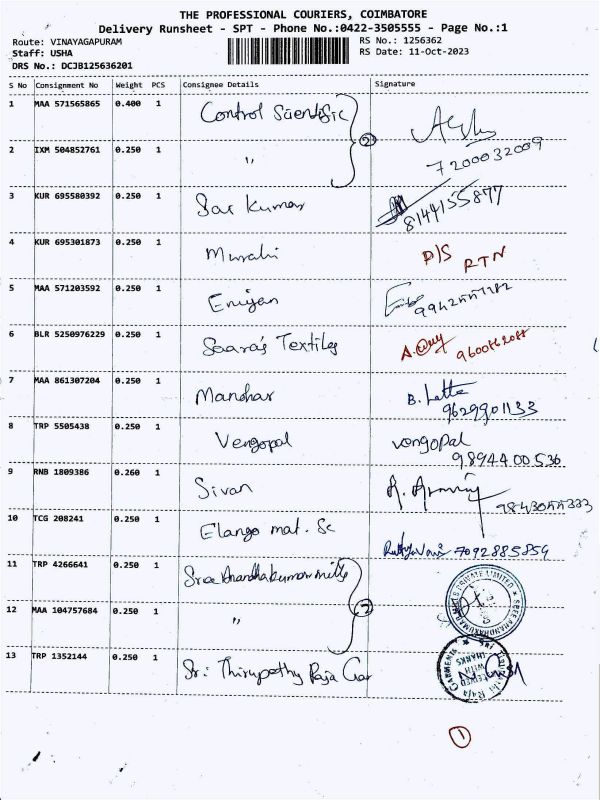 THE PROFESSIONAL COURIERS, COIMBATORE
Delivery Runsheet - SPT - Phone No.:0422-3505555 - Page No.:1
Route: VINAYAGAPURAM RS No.: 1256362
Staff: USHA RS Date: 11-Oct-2023
DRS No.: DCJB125636201
S No Consignment No Weight PCS Consignee Details Signature
1 MAA 571565865 0.400 1 Control Scientific
2
2 IXM 504852761 0.250 1 " 7200032009
3 KUR 695580392 0.250 1 Sar Kumar 8144155877
4 KUR 695301873 0.250 1 Murali D/S RTN
5 MAA 571203592 0.250 1
6 BLR 5250976229 0.250 1 Textiles
7 MAA 861307204 0.250 1 Manohar B. Latha
9629901133
8 TRP 5505438 0.250 1 Vengopal vengopal
9894400536
9 RNB 1809386 0.260 1 Sivan
10 TCG 208241 0.250 1 Elango mat. Sc
7092885859
11 TRP 4266641 0.250 1 Sree Anandhakumar mills
2
12 MAA 104757684 0.250 1 "
13 TRP 1352144 0.250 1 Sri Thirupathy Raja Gar
1